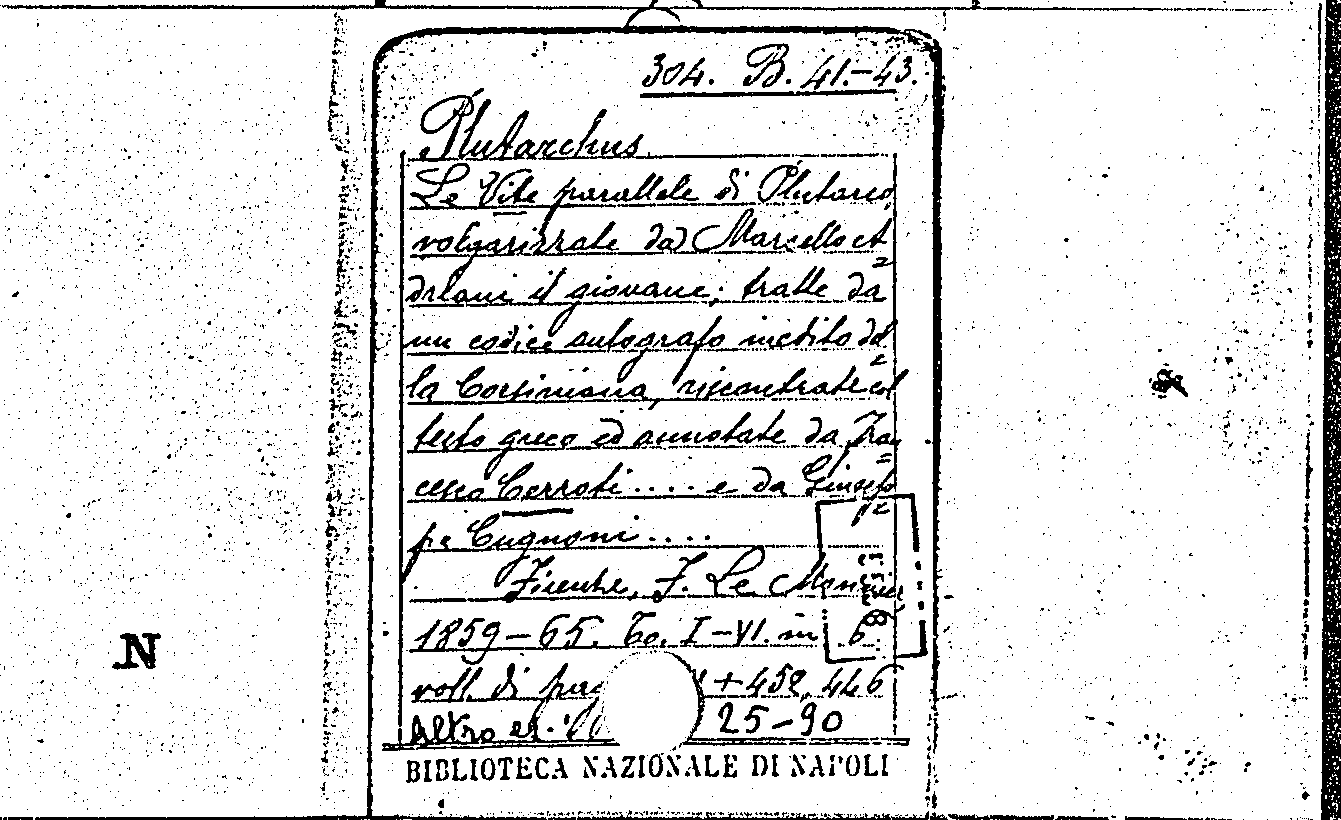 304. B. 41.-43.
Plutarchus.
Le Vite parallele di Plutarco,
volgarizzate da Marcello A=
driani il giovane; tratte da
un codice autografo inedito del=
la Corsiniana, riscontrate col
testo greco ed annotate da Fran=
cesco Cerroti.... e da Giusep=
pe Cugnoni....
Firenze, F. Le Monnier
1859-65. To. I-VI. in 6
voll. di pag + 458, 446
Altro es. 25-90
BIBLIOTECA NAZIONALE DI NAPOLI
N